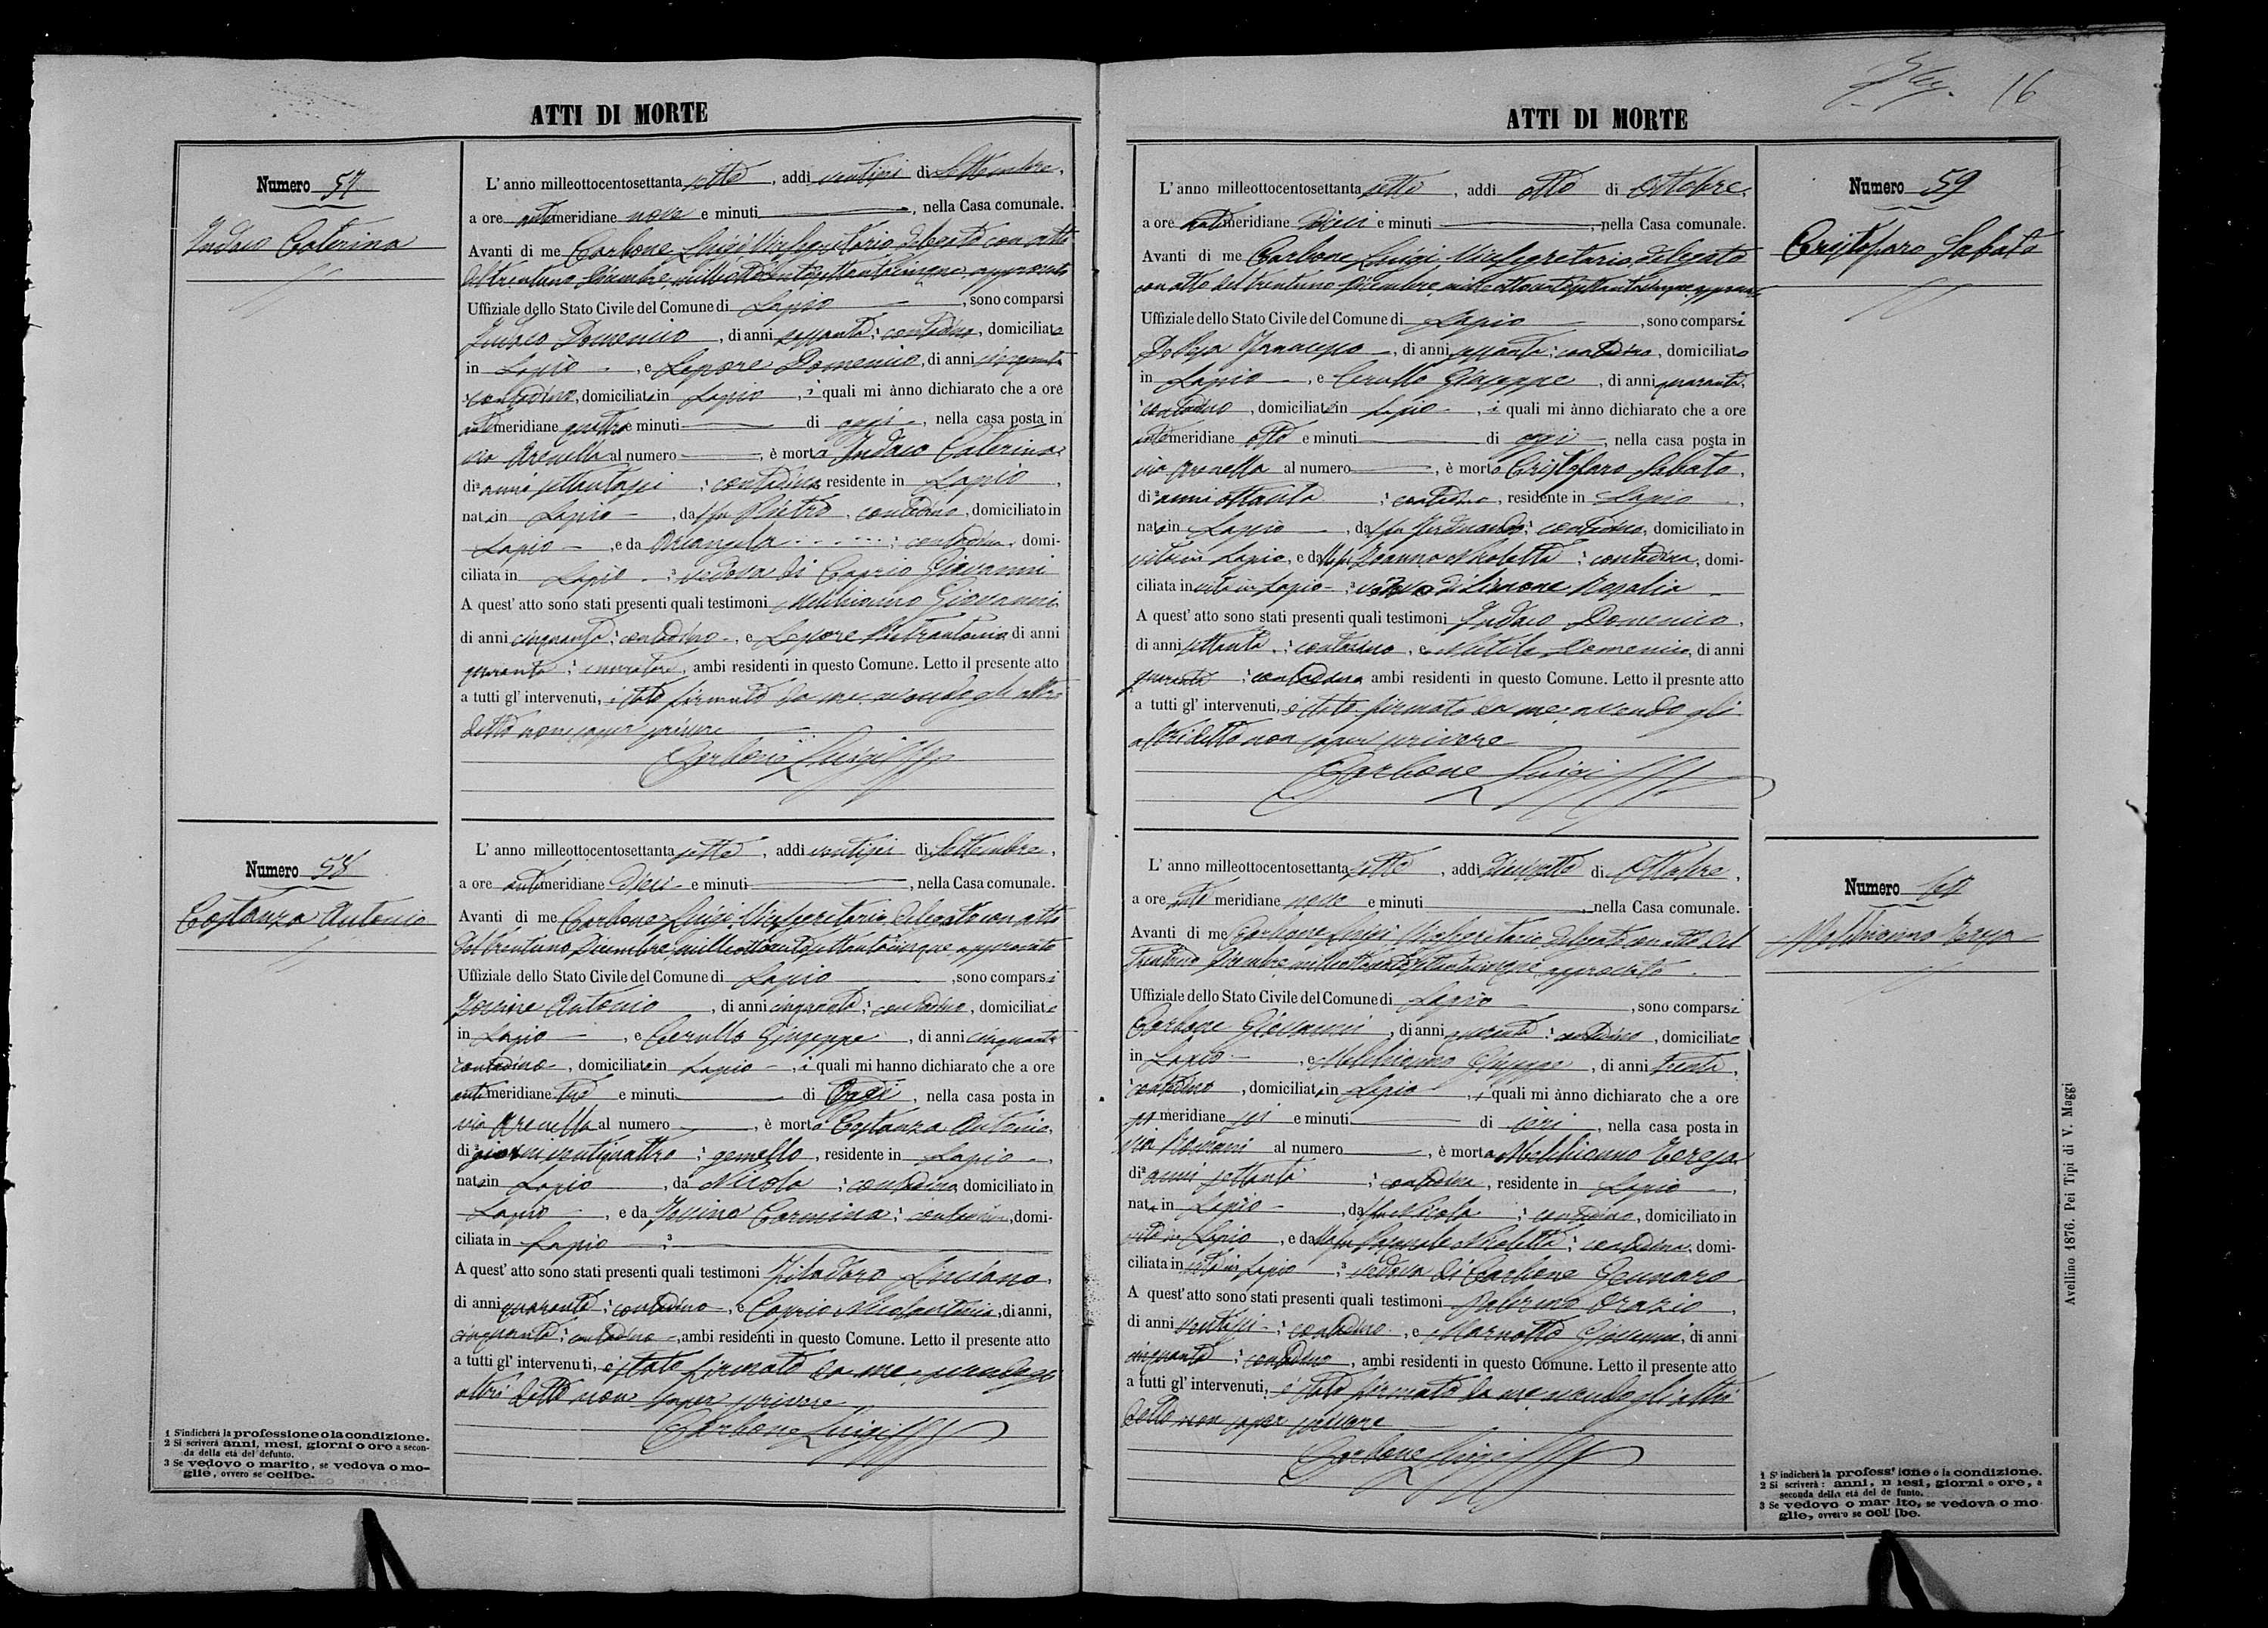 ATTI DI MORTE
Numero 57
Indaco Caterina
L' anno milleottocentosettanta sette, addi ventisei di Settembre,
a ore antimeridiane nove e minuti, nella Casa comunale.
Avanti di me Carbone Luigi Vicesegretario delegato con atto
del trentuno Dicembre milleottocentosettantacinque approvato
Uffiziale dello Stato Civile del Comune di Lapio, sono comparsi
Indaco Domenico, di anni sessanta, contadino, domiciliato
in Lapio, e Lepore Domenico, di anni cinquanta
contadino, domiciliato in Lapio, i quali mi ànno dichiarato che a ore
antimeridiane quattro e minuti di oggi, nella casa posta in
via Arenella al numero, è morta Indaco Caterina
di anni settantasei, contadina residente in Lapio,
nata in Lapio, da fu Pietro, contadino, domiciliato in
Lapio, e da Arcangela contadina, domi-
ciliata in Lapio 3 vedova di Caprio Giovanni
A quest' atto sono stati presenti quali testimoni Melchionno Giovanni
di anni cinquanta, contadino, e Lepore Pietrantonio di anni
quaranta, muratore, ambi residenti in questo Comune. Letto il presente atto
a tutti gl' intervenuti, è stato firmato da me avendo gli altri
detto non saper scrivere
Carbone Luigi
Numero 58
Costanza Antonio
L' anno milleottocentosettanta sette, addi ventisei di Settembre,
a ore antimeridiane dieci e minuti, nella Casa comunale.
Avanti di me Carbone Luigi Vicesegretario delegato con atto
del trentuno Dicembre milleottocentosettantacinque approvato
Uffiziale dello Stato Civile del Comune di Lapio, sono comparsi
Iovine Antonio, di anni cinquanta, contadino, domiciliato
in Lapio, e Cerullo Giuseppe, di anni cinquanta
contadino, domiciliato in Lapio, i quali mi hanno dichiarato che a ore
antimeridiane tre e minuti di Oggi, nella casa posta in
via Arenella al numero, è morto Costanza Antonio,
di giorni ventiquattro, gemello, residente in Lapio,
nato in Lapio, da Nicola, contadino, domiciliato in
Lapio, e da Iovine Carmina, contadina, domi-
ciliata in Lapio 3
A quest' atto sono stati presenti quali testimoni Luciano,
di anni quaranta, contadino, e Caprio Nicolantonio, di anni,
cinquanta, contadino, ambi residenti in questo Comune. Letto il presente atto
a tutti gl' intervenuti, è stato firmato da me avendo gli
altri detto non saper scrivere
Carbone Luigi
1 S'indicherà la professione o la condizione.
2 Si scriverà anni, mesi, giorni o ore a secon-
da della età del defunto.
3 Se vedovo o marito, se vedova o mo-
glie, ovvero se celibe.
16
ATTI DI MORTE
Numero 59
Cristofaro Sabato
L' anno milleottocentosettanta sette, addi otto di Ottobre,
a ore antimeridiane dieci e minuti, nella Casa comunale.
Avanti di me Carbone Luigi Vicesegretario delegato
con atto del trentuno Dicembre milleottocentosettantacinque
Uffiziale dello Stato Civile del Comune di Lapio, sono comparsi
di anni sessanta, contadino, domiciliato
in Lapio, e Cerullo Giuseppe, di anni quaranta,
contadino, domiciliato in Lapio, i quali mi ànno dichiarato che a ore
antimeridiane otto e minuti di oggi, nella casa posta in
via Arenella al numero, è morto Cristofaro Sabato,
di anni ottanta, contadino, residente in Lapio,
nato in Lapio, da fu Ferdinando, contadino, domiciliato in
vita in Lapio, e da Nicoletta, contadina, domi-
ciliata in vita in Lapio 3 vedovo di Simone Rosalia
A quest' atto sono stati presenti quali testimoni Indaco Domenico,
di anni settanta, contadino, e Domenico, di anni
quaranta, contadino ambi residenti in questo Comune. Letto il presnte atto
a tutti gl' intervenuti, è stato firmato da me avendo gli
altri detto non saper scrivere
Carbone Luigi
Numero 60
Melchionno Teresa
L' anno milleottocentosettanta sette, addi diciassette di Ottobre,
a ore antimeridiane nove e minuti, nella Casa comunale.
Avanti di me Carbone Luigi Vicesegretario delegato con atto del
trentuno Dicembre milleottocentosettantacinque approvato
Uffiziale dello Stato Civile del Comune di Lapio, sono comparsi
Carbone Giovanni, di anni quaranta, contadino, domiciliato
in Lapio, e Melchionno Giuseppe, di anni trenta,
contadino, domiciliato in Lapio, i quali mi ànno dichiarato che a ore
meridiane sei e minuti di ieri, nella casa posta in
via Romani al numero, è morta Melchionno Teresa
di anni settanta, contadina, residente in Lapio,
nata in Lapio, da fu Nicola, contadino, domiciliato in
vita in Lapio, e da Nicoletta, contadina, domi-
ciliata in vita in Lapio 3 vedova di Carbone Gennaro
A quest' atto sono stati presenti quali testimoni Palermo Orazio,
di anni ventisei, contadino, e Giovanni, di anni
cinquanta, contadino, ambi residenti in questo Comune. Letto il presente atto
a tutti gl' intervenuti, è stato firmato da me avendo gli altri
detto non saper scrivere
Carbone Luigi
1 S' indicherà la professione o la condizione.
2 Si scriverà: anni, mesi, giorni o ore, a
seconda della età del defunto.
3 Se vedovo o marito, se vedova o mo-
glie, ovvero se celibe.
Avellino 1876. Pei Tipi di V. Maggi